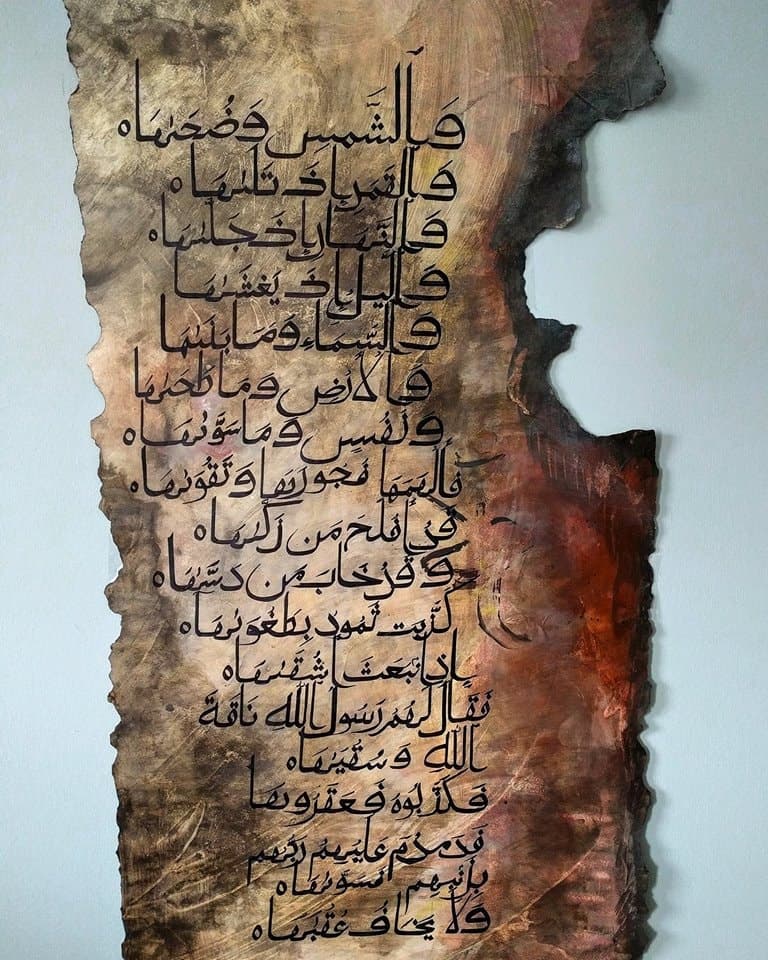 وَٱلشَّمسِ وَضُحَىٰهَا
وَٱلقَمَرِ إِذَا تَلَىٰهَا
وَٱلنَّهَارِ إِذَا جَلَّىٰهَا
وَٱلَّيلِ إِذَا يَغشَىٰهَا
وَٱلسَّمَاءِ وَمَا بَنَىٰهَا
وَٱلأَرضِ وَمَا طَحَىٰهَا
وَنَفسٍ وَمَا سَوَّىٰهَا
فَأَلهَمَهَا فُجُورَهَا وَتَقوَىٰهَا
قَد أَفلَحَ مَن زَكَّىٰهَا
وَقَد خَابَ مَن دَسَّىٰهَا
كَذَّبَت ثَمُودُ بِطَغوَىٰهَا
إِذِ ٱنبَعَثَ أَشقَىٰهَا
فَقَالَ لَهُم رَسُولُ ٱللَّهِ نَاقَةَ
ٱللَّهِ وَسُقيَٰهَا
فَكَذَّبُوهُ فَعَقَرُوهَا
فَدَمدَمَ عَلَيهِم رَبُّهُم
بِذَنبِهِم فَسَوَّىٰهَا
وَلَا يَخَافُ عُقبَٰهَا